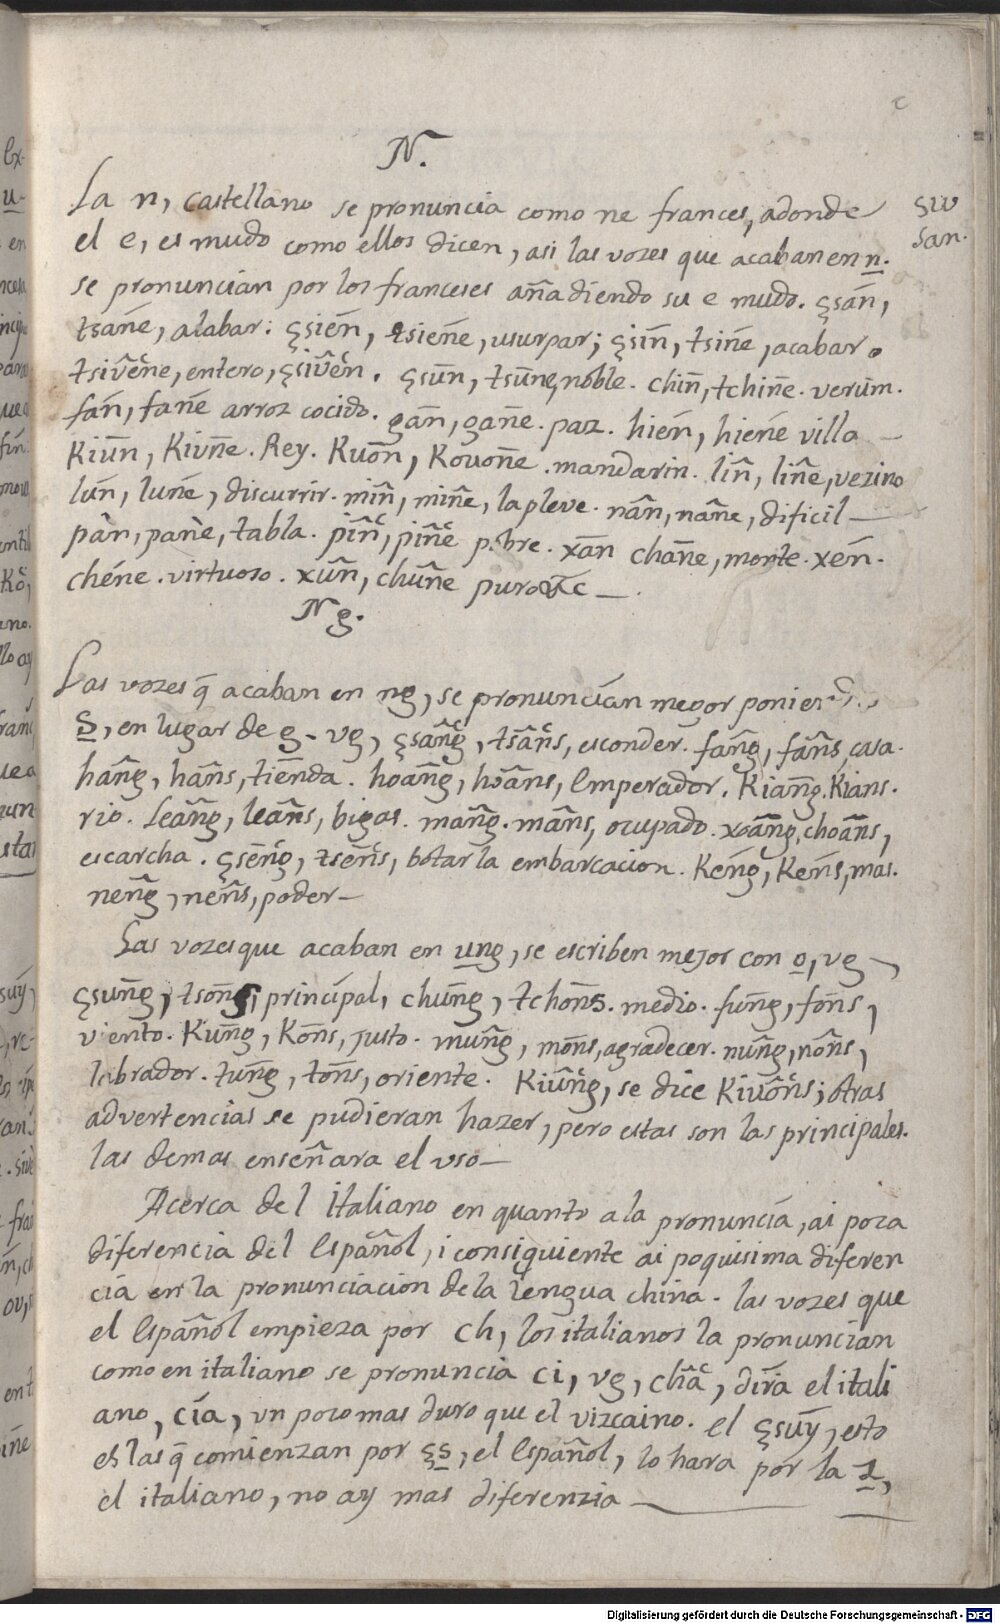 N.
La n, castellano se pronuncia como ne frances, adonde
el e, es mudo como ellos dicen, asi las vozes que acaban en n.
se pronuncian por los franceses añadiendo su e mudo. çsán̄,
tsan̄e, alabar: çsién̄, tsien̄e, usurpar; çsīn̄, tsin̄e, acabar.
tsivêne, entero, çsivên. çsūn̄, tsūn̄e, noble. chin̄, tchin̄e. verum.
fán̄, fan̄e arroz cocido. gān̄, gan̄e. paz. hién̄, hién̄e villa —
Kiūn̄, Kivn̄e. Rey. Kuōn̄, Kouon̄e. mandarin. lîn̄, lin̄e, vezino
lún̄, lun̄e, discurrir. mîn̄, min̄e, la pleve. nân̄, nân̄e, dificil —
pàn, pan̄e, tabla. pîn̄, pîn̄e pobre. xān̄ chan̄e, monte. xén̄.
chéne. virtuoso. xûn̄, chûn̄e puro &c —.
Ng.
Las vozes q̄ acaban en ng, se pronuncian megor
s, en lugar de g. vg, çsân̄g, tsân̄s, esconder. fân̄g, fân̄s, casa.
hân̄g, hân̄s, tienda. hoân̄g, hoân̄s, Emperador. Kiān̄g. Kians.
rio. Leân̄g, leân̄s, bigas. mân̄g. mân̄s, ocupado. xoān̄g, choān̄s,
escarcha. çsēn̄g, tsēn̄s, botar la embarcacion. Kén̄g, Kén̄s, mas.
nên̄g, nên̄s, poder —
Las vozes que acaban en ung, se escriben mejor con o, vg —,
çsun̄g, tson̄s, principal, chun̄g, tchon̄s. medio. fun̄g, fon̄s,
viento. Kun̄g, Kon̄s, justo. mun̄g, mon̄s, agradecer. nûn̄g, nôn̄s,
labrador. tun̄g, ton̄s, oriente. Kiûn̄g, se dice Kivôn̄s; otras
advertencias se pudieran hazer, pero estas son las principales.
las demas enseñara el uso —
Acerca del Italiano en quanto a la pronuncia, ai poca
diferencia del Español, i consiguiente ai poquisima diferen
cia en la pronunciacion de la lengua china. las vozes que
el Español empieza por ch, los italianos la pronuncian
como en italiano se pronuncia ci, vg, chîā, dira el itali
ano, cía, un poco mas duro que el vizcaino. el çsuȳ, esto
es las q̄ comienzan por çs, el Español, lo hara por la z,
el italiano, no ay mas diferenzia —
Digitalisierung gefördert durch die Deutsche Forschungsgemeinschaft - DFG